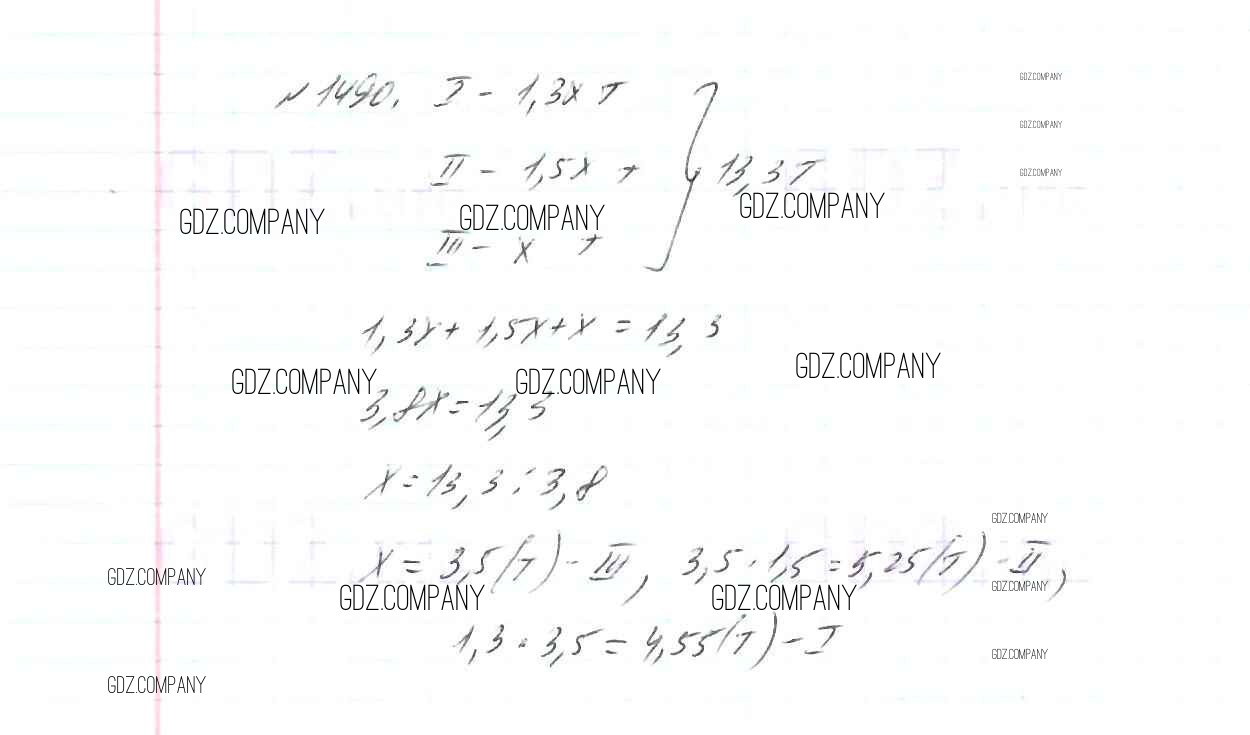 №1490. I - 1,3х т
GDZ.COMPANY
GDZ.COMPANY
II - 1,5х т } 13,3т
GDZ.COMPANY
GDZ.COMPANY GDZ.COMPANY GDZ.COMPANY
III - х т
1,3х + 1,5х + х = 13,3
GDZ.COMPANY GDZ.COMPANY GDZ.COMPANY
3,8х = 13,3
х = 13,3 : 3,8
GDZ.COMPANY
х = 3,5(т) - III, 3,5 · 1,5 = 5,25(т) - II,
GDZ.COMPANY GDZ.COMPANY GDZ.COMPANY GDZ.COMPANY
1,3 · 3,5 = 4,55(т) - I
GDZ.COMPANY
GDZ.COMPANY